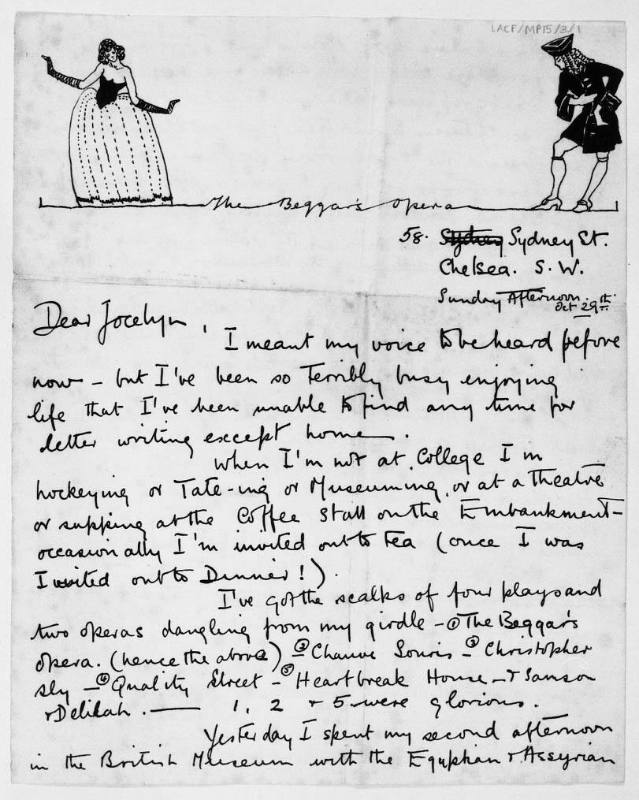 LACF/MP15/3/1
The Beggar's Opera
58. Sydney Sydney St.
Chelsea. S. W.
Sunday Afternoon.
Oct 29th.
Dear Jocelyn,
I meant my voice to be heard before
now – but I've been so terribly busy enjoying
life that I've been unable to find any time for
letter writing except home.
When I'm not at College I'm
hockeying or Tate-ing or Museuming, or at a theatre
or supping at the Coffee Stall on the Embankment –
occasionally I'm invited out to tea (once I was
Invited out to Dinner!).
I've got the scalps of four plays and
two operas dangling from my girdle – ① The Beggar's
opera. (hence the above) – ② Chauve Souris – ③ Christopher
Sly – ④ Quality Street – ⑤ Heartbreak House – & Samson
& Delilah. — 1, 2 & 5 were glorious.
Yesterday I spent my second afternoon
in the British Museum with the Egyptian & Assyrian